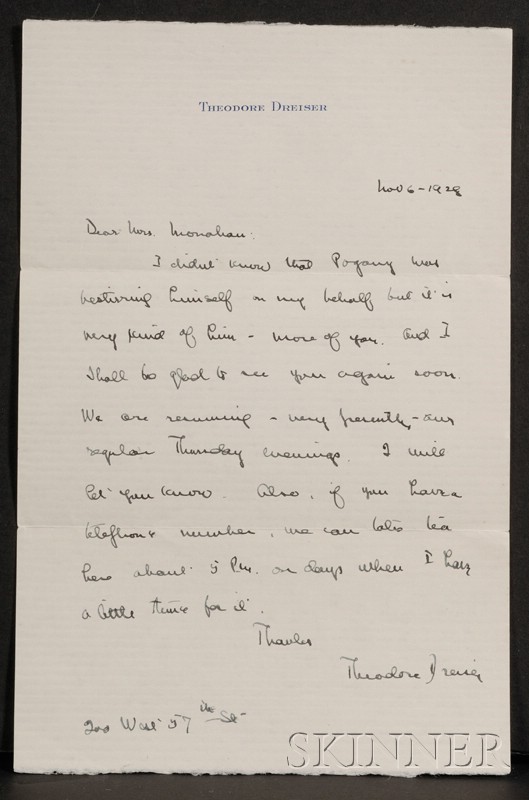 THEODORE DREISER
Nov 6-1928
Dear Mrs. Monahan:
I didn't know that Pogany was
bestirring himself on my behalf but it is
very kind of him - more of you. And I
shall be glad to see you again soon.
We are resuming - very presently - our
regular Thursday evenings. I will
let you know. Also, if you have a
telephone number, we can take tea
here about 5 P.m. on days when I have
a little time for it.
Thanks
Theodore Dreiser
200 West 57 the St
SKINNER